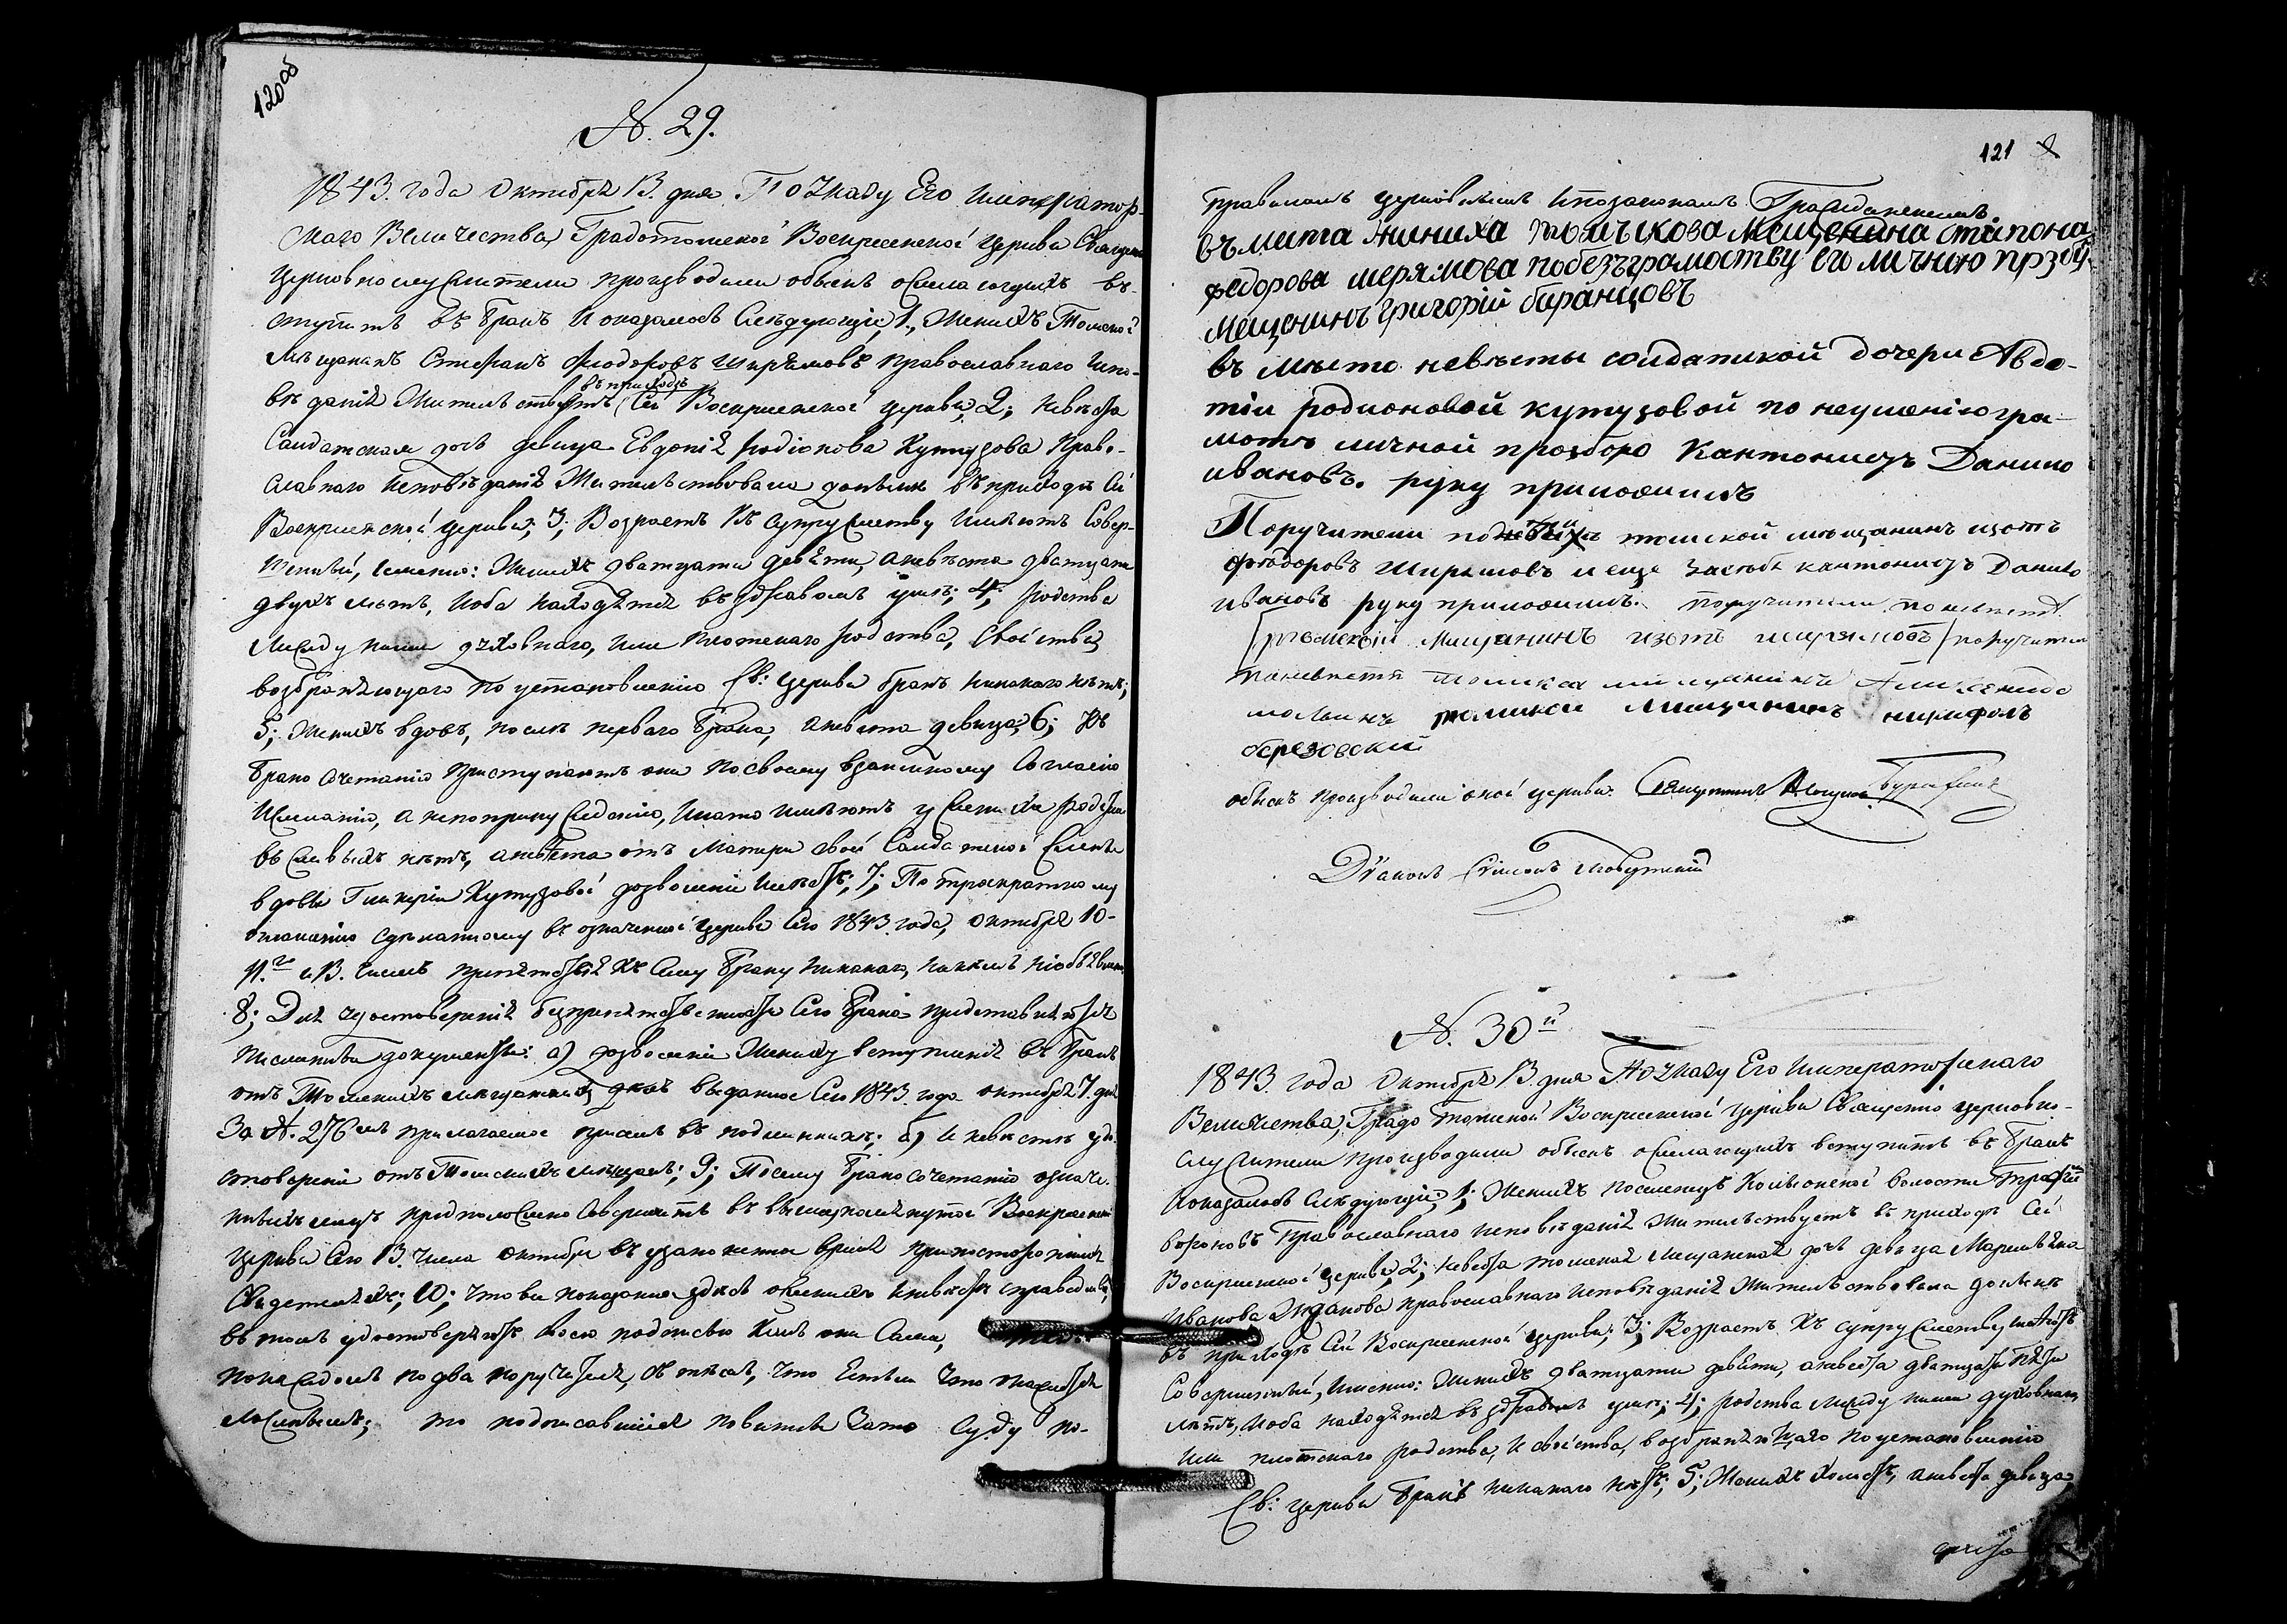 120об
№ 29.
1843. года Октября 13. дня По Указу Его Император-
скаго Величества, Градотомской Воскресенской церкви Священно
церковнослужители производили обыскъ о желающихъ в-
ступить въ бракъ и оказалось следующее, 1., Женихъ Томской
мѣщанинъ Стефанъ Феодоровъ Ширямовъ православнаго испо-
въ приходѣ
вѣданія жительствуетъ сей Воскресенской церкви, 2; невѣста
Салдатская дочь девица Евдокія Родіонова Кутузова право-
славнаго исповѣданія жительствовала доселѣ въ приходѣ сей
Воскресенской церкви; 3; Возрастъ къ супружеству имѣютъ совер-
шенный, именно: женихъ дватцати девяти, а невѣста дватцати
двухъ летъ, и оба находятся въ здравомъ умѣ; 4; родства
между ними духовнаго, или плотскаго родства, свойства,
возбраняющаго по установленію Св: церкви бракъ никакого нѣтъ;
5; Женихъ вдовъ, послѣ перваго брака, а невѣста девица; 6; Къ
бракосочетанію приступаютъ они по своему взаимному согласію
и желанію, а не по принужденію, и на то имѣютъ у жениха родители
въ живыхъ нѣтъ, а невѣста отъ матери своей Салдатской жены
вдовы Гликеріи Кутузовой дозволеніе имѣетъ; 7; По троекратному
оглашенію сдѣланному въ означенной церкви сего 1843 года, октября 10-
11.го и 13. числъ препятствія къ сему браку никакого, никѣмъ не объявлено
8; Для удостоверенія безпрепятственности сего брака представляются
письменные документы: а) дозволеніе жениху вступленія въ бракъ
отъ Томскихъ мѣщанскихъ дѣлъ выданное сего 1843. года октября 7. дня
За №. 276мъ прилагаемое присемъ въ подлинникѣ: б) и невѣстѣ удо-
стовереніе отъ Томскихъ мѣщанъ; 9; Посему бракосочетаніе означен-
ныхъ лицъ предположено совершить въ вышеупомянутой Воскресенской
церкви сего 13. числа октября въ узаконенное время при постороннихъ
свидетеляхъ; 10; Что все показанное здѣсь о женихѣ и невѣстѣ справедливо,
въ томъ удостоверяютъ своею подписью какъ они сами, так:
по каждомъ по два поручителя, съ тѣмъ, что естьли что окажется
ложнымъ; то подписавшіеся повинны за то суду по-
121
правиламъ церковнымъ и по законамъ Гражданскимъ
въ места жениха томъскова мещенина стипона
федорова шерямова побезъграмоству его личною прозб.
мещенинъ григорій баранцовъ
въ мѣсто невѣсты солдатской дочери Авдо-
тіи родионовой кутузовой по неуменію гра-
мотъ личной прозбою Кантонисъ Данило
ивановъ. руку приложилъ
Поручители томской мѣщанинъ изотъ
феодоровъ Ширямовъ и еще засебя кантонисъ Данило
ивановъ руку приложилъ. поручители поневестѣ
томской мещанинъ изотъ ширямовъ поручители
поневестѣ томской мещанинъ
томской мещининъ никифоръ
березовскій
обыскъ производили оной церкви. Священникъ
Діаконъ Симеонъ
№. 30й
1843. года Октября 13. дня По Указу Его Императорскаго
Величества, Градо Томской Воскресенской церкви Священно церковно-
служители производили обыскъ о желающихъ вступить въ бракъ
и оказалось слѣдующее, 1; Женихъ поселенецъ волости Трофимъ
вороновъ Православнаго исповѣданія жительствуетъ въ приходѣ сей
Воскресенской церкви, 2; невѣста томская мещанская дочь девица Маремьяна
Иванова Жданова православнаго исповѣданія жительствовала доселѣ
въ приходѣ сей Воскресенской церкви; 3; Возрастъ къ супружеству имѣютъ
совершенный, именно: женихъ дватцати девяти, а невѣста дватцати пяти
лѣтъ, и оба находятся въ здравомъ умѣ; 4; родства между ними духовнаго,
или плотскаго родства, и свойства, возбраняющаго по установленію
Св: церкви бракъ никакого нѣтъ; 5; Женихъ холостъ, а невѣста девица